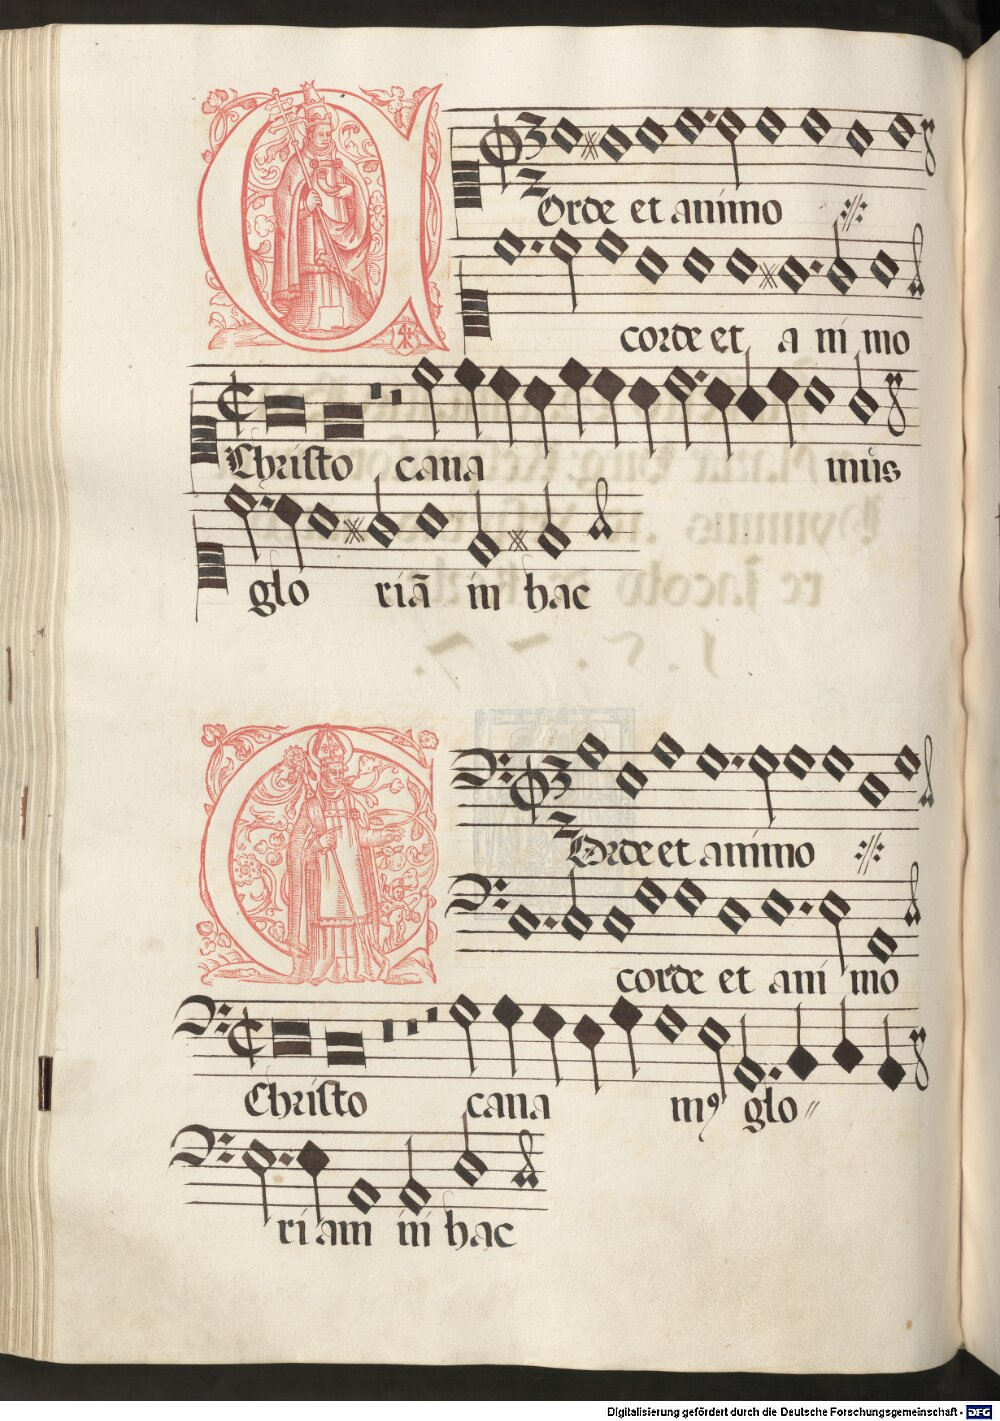 Corde et animo
corde et a ni mo
Christo cana mus
glo riā in hac
Corde et animo
corde et ani mo
Christo cana mꝰ glo
ri am in hac
Digitalisierung gefördert durch die Deutsche Forschungsgemeinschaft - DFG